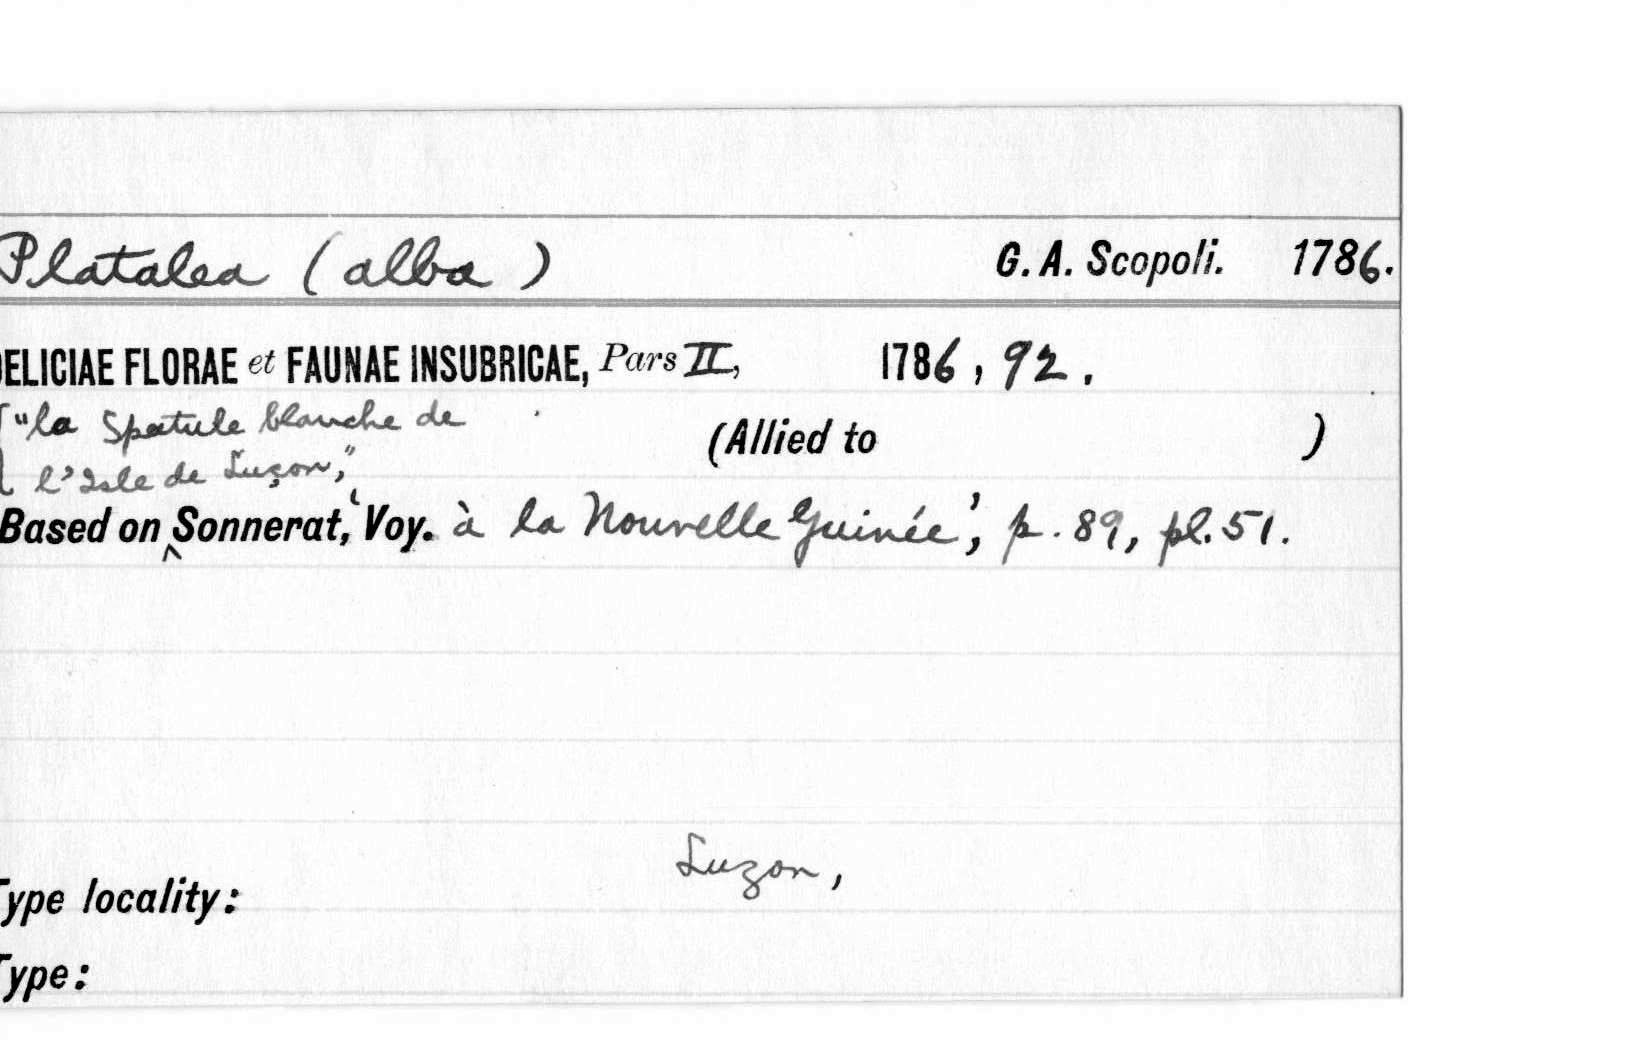 Platalea (alba) G. A. Scopoli. 1786.
DELICIAE FLORAE et FAUNAE INSUBRICAE, Pars II, 1786, 92.
"la Spatule blanche de
(Allied to )
l'Isle de Luçon,"
Based on ‸ Sonnerat, 'Voy. à la Nouvelle Guinée', p. 89, pl. 51.
Luzon,
Type locality:
Type: